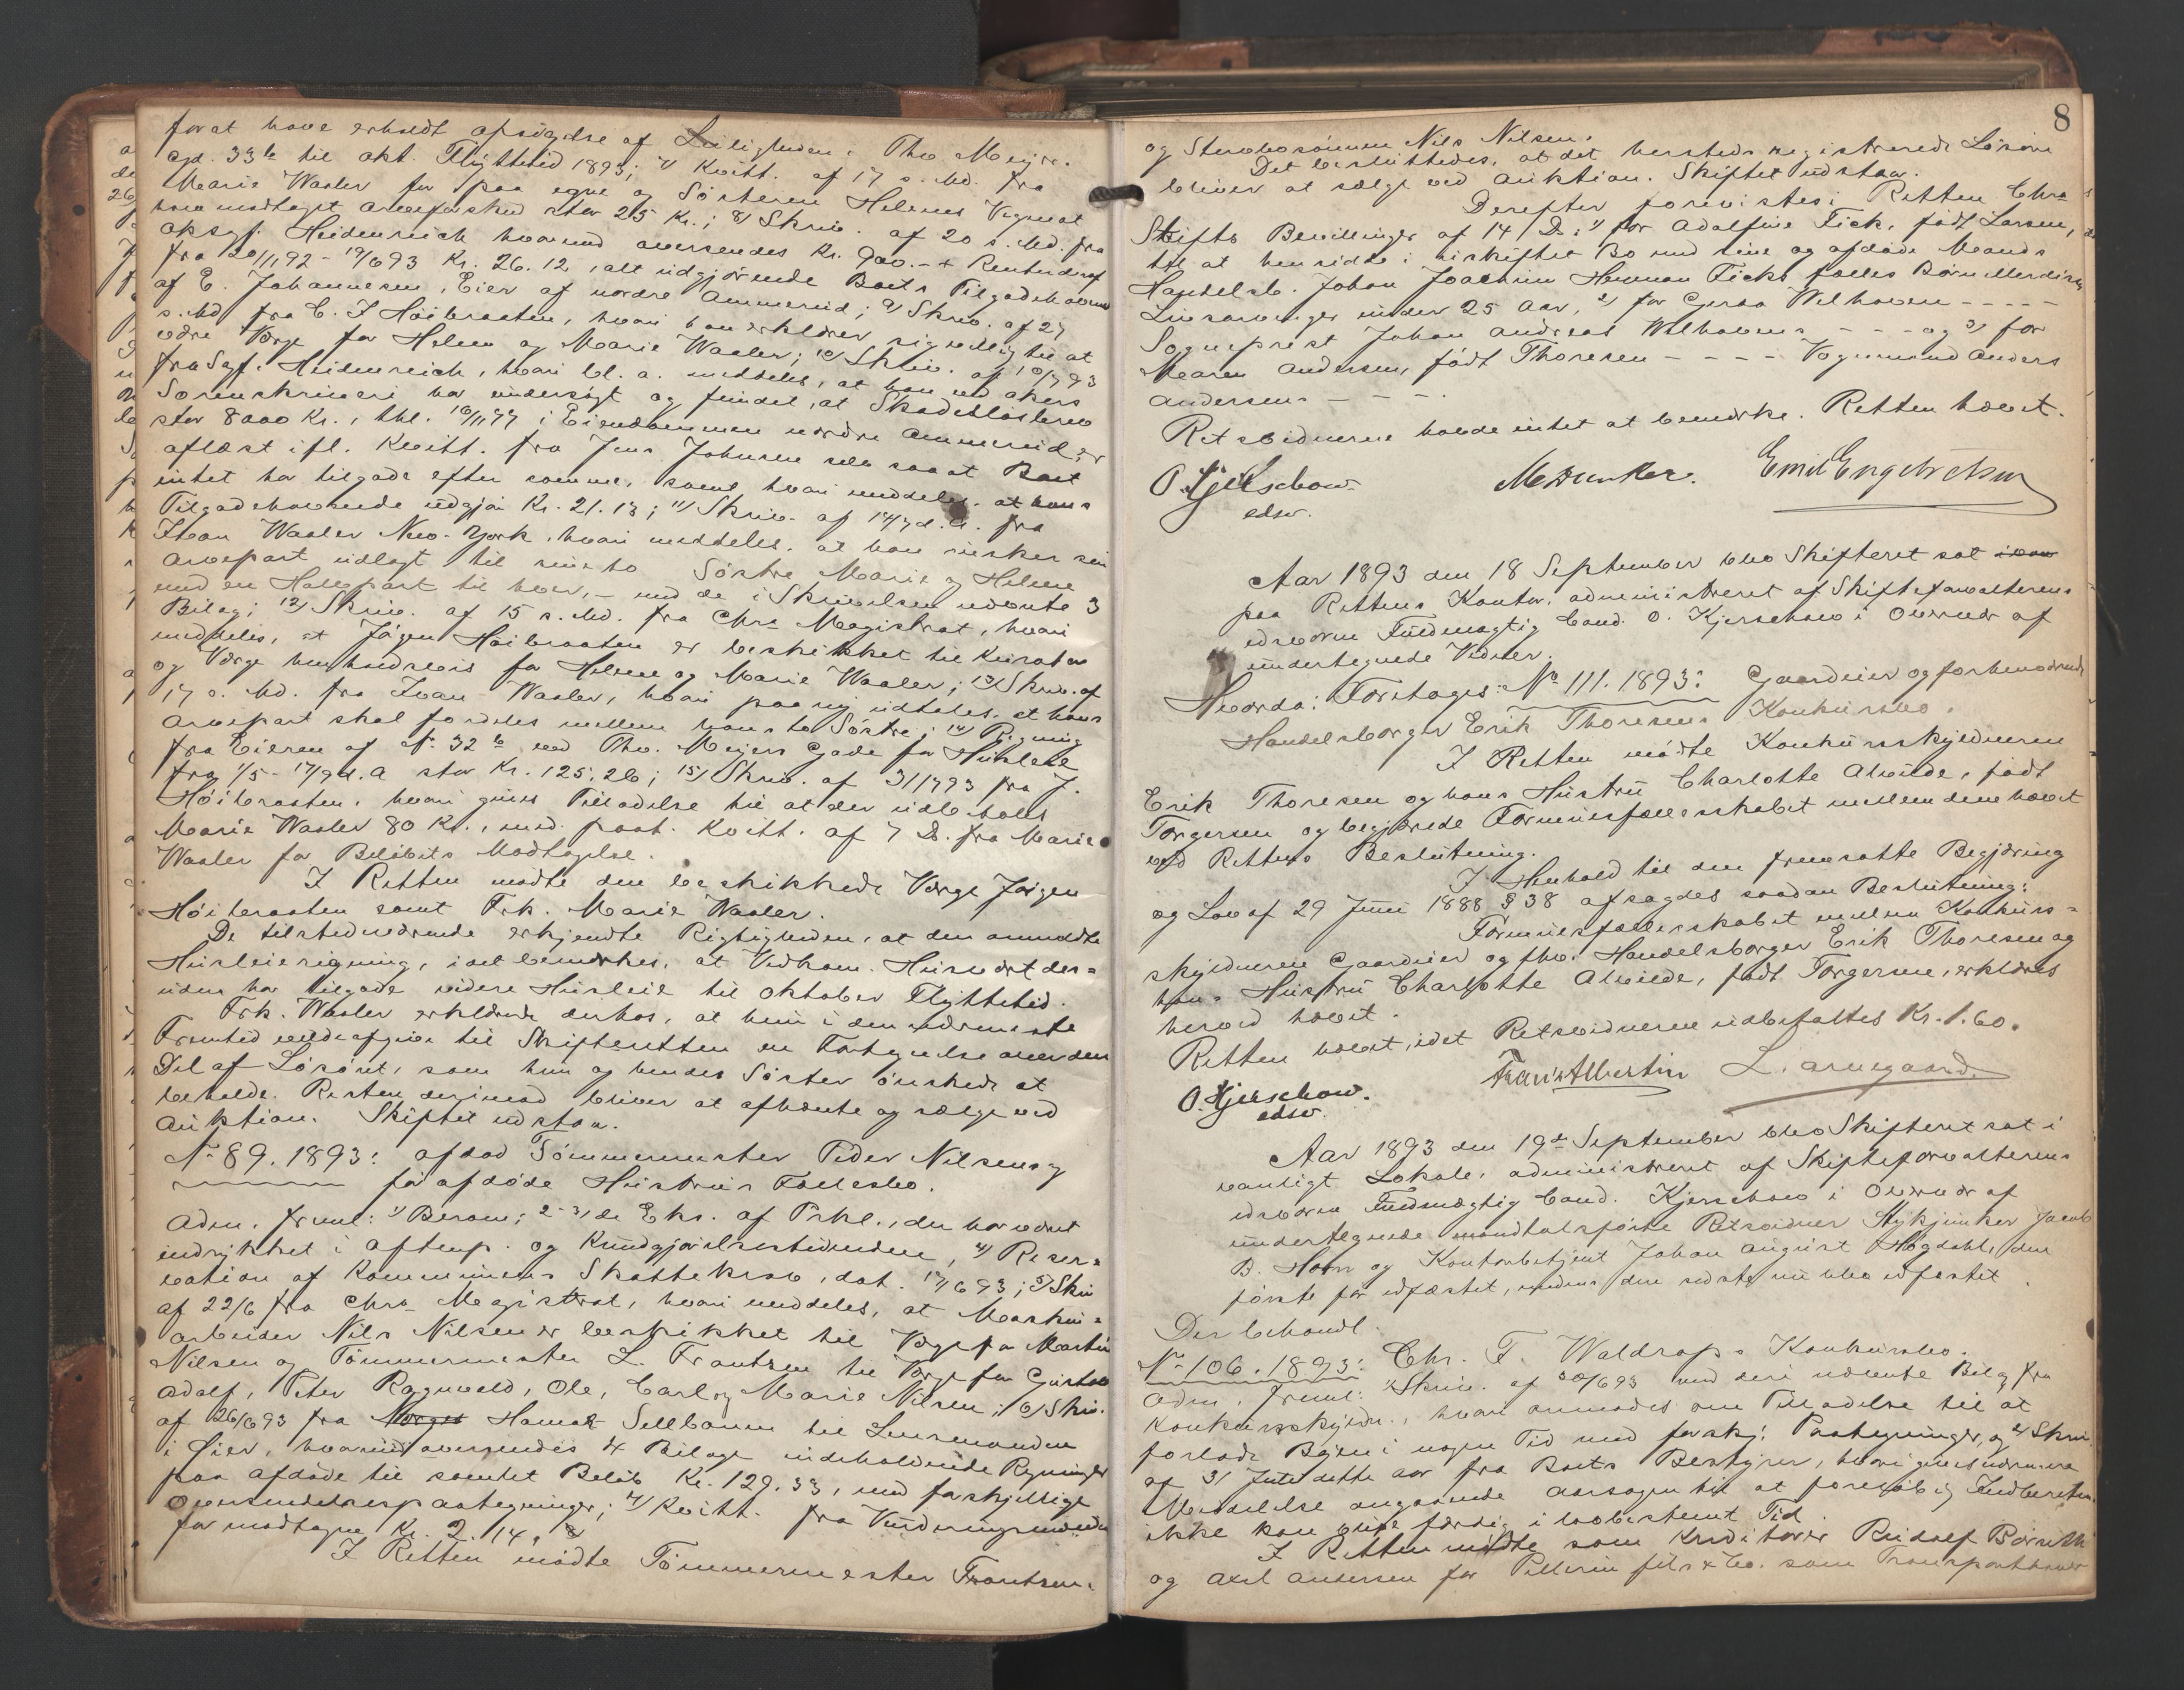 for at have erholdt opsigelse af Leiligheden. Thv. Meyers
Gd. 33b til Okt. Flyttetid 1893; 7) Kvitt. af 17 s. Md. fra
Marie Waaler for paa egne og Søsteren Helenes Vegne at
have modtaget Arveforskud stor 25 Kr.; 8) Skriv. af 20 s. Md. fra
Ohsgf. Heidenreich hvorved oversendes Kr. 900.- + Renter deraf
fra 20/11 92 - 19/6 93 Kr. 26.12, alt udgjørende Boets Tilgodehavende
af E. Johannesen, Eier af nordre Ammerud; 9) Skriv. af 27
s. Md. fra C. J. Høibraaten, hvori han erklærer sig villig til at
være Værge for Helene og Marie Waaler; 10) Skriv. af 10/7 93
fra Sgf. Heidenreich, hvori bl. a. meddeles, at han ved Akers
Sorenskriveri har undersøgt og fundet, at Skadesløsbrev
stor 8000 Kr., thl. i Eiendommen nordre Ammerud er
aflæst ifl. Kvitt. fra Jens Johnsen selv saa at Boet
intet har tilgode efter samme, samt hvori meddeles, at hans
Tilgodehavende udgjør Kr. 21.13; 11) Skriv. af 14/7 d. A. fra
Ivan Waaler New-York, hvori meddeles, at han ønsker sin
Arvepart udlagt til sine to Søstre Marie og Helene
med en Halvpart til hver, - med de i Skrivelsen nævnte 3
Bilag; 12) Skriv. af 15 s. Md. fra Chra Magistrat, hvori
meddeles, at Jørgen Høibraaten er beskikket til Kurator
og Værge henholdsvis for Helene og Marie Waaler; 13) Skriv. af
17 s. Md. fra Ivan Waaler, hvori paany udtales, at hans
Arvepart skal fordeles mellem hans to Søstre; 14) Regning
fra Eieren af No 32b ved Thv. Meyers Gade for Husleie
fra 1/5 - 17/9 d. A stor Kr. 125.26; 15) Skriv. af 31/7 93 fra J.
Høibraaten, hvori gives Tilladelse til at der udbetales
Marie Waaler 80 Kr., med paat. Kvitt. af 7 D. fra Marie
Waaler for Beløbets Modtagelse.
I Retten mødte den beskikkede Værge Jørgen
Høibraaten samt Frk. Marie Waaler.
De tilstedeværende erkjendte Rigtigheden, at den anmeldte
Husleieregning, idet bemærkes, at Vedkom. Husvært des=
uden har tilgode videre Husleie til Oktober Flyttetid.
Frk. Waaler erklærede derhos, at hun i den nærmeste
Fremtid vilde afgive til Skifteretten en Fortegnelse over den
Del af Løsøret, som hun og hendes Søster ønskede at
beholde. Resten derimod bliver at afhente og sælge ved
Auktion. Skiftet udstaar.
No 89. 1893: afdød Tømmermester Peder Nilsens og
før afdøde Hustrus Fællesbo.
Adm. freml: 1) Beram; 2-3) de Eks. af Prkl., der har været
indrykket i Aftenp. og Kundgjørelsestidenden, 4) Reser=
vation af Kommunens Skattekrav, dat. 17/6 93; 5) Skr
af 22/6 fra Chra Magistrat, hvori meddeles, at Maskin=
arbeider Nils Nilsen er beskikket til Værge for Martin
Nilsen og Tømmermester L. Frantzen til Værge for Gustav
Adolf, Peter Ragnvald, Ole, Carl og Marie Nilsen; 6) Skr.
af 26/6 93 fra Norges Hamar Sellbaum til Lensmanden
i Øier, hvorved oversendes 4 Bilage indeholdende Regninger
paa Afdøde til samlet Beløb Kr. 129.33, med forskjellige
Oversendelsespaategninger; 7) Kvitt. fra Vurderingsmænden
for modtagne Kr. 2.14.
I Retten mødte Tømmermester Frantzen
8
og Stervbosønnen Nils Nilsen.
Det besluttedes, at det hersteds registrerede Løsøre
bliver at sælge ved Auktion. Skiftet udstaar.
Derefter forevistes i Retten Chra
Stifts Bevillinger af 14 D: 1) for Adolfine Fick, født Larsen,
til at hensidde i uskiftet Bo med sine og afdøde Mands
Handelsb. Johan Joachim Herman Ficks fælles Børn eller disses
Livsarvinger under 25 Aar, 2) for Gerda Welhaven - - - - -
Sogneprest Johan Andreas Welhavens - - - og 3) for
Maren Andersen, født Thoresen - - - - Vognmand Anders
Andersens - - -.
Retsvidnerne havde intet at bemærke. Retten hævet.
O. Kjerschow
edsv.
M Dunker.
Emil Engebretsen
Aar 1893 den 18 September blev Skifteret sat
paa Rettens Kontor, administreret af Skifteforvalterens
edsvorne Fuldmægtig Cand. O. Kjerschow i Overvær af
undertegnede Vidner.
Hvorda: Foretages: No 111. 1893: Gaardeier og forhenværende
Handelsborger Erik Thoresens Konkursbo.
I Retten mødte Konkursskyldneren
Erik Thoresen og hans Hustru Charlotte Alvilde, født
Torgersen og begjærede Formuesfællesskabet mellem dem hævet
ved Rettens Beslutning.
I Henhold til den fremsatte Begjæring
og Lov af 29 Juni 1888 § 38 afsagdes saadan Beslutning:
Formuesfællesskabet mellem Konkurs=
skyldneren Gaardeier og fhv. Handelsborger Erik Thoresen og
hans Hustru Charlotte Alvilde, født Torgersen, erklæres
herved hævet.
Retten hævet, idet Retsvidnerne udbetaltes Kr. 1.60.
O. Kjerschow.
edsv.
Frantz Albertin
L. Arnegaard
Aar 1893 den 19de September blev Skifteret sat i
vanligt Lokale, administreret af Skifteforvalterens
edsvorne Fuldmægtig Cand. Kjerschow i Overvær af
undertegnede mandtalsførte Retsvidner Stykjunker Jacob
B. Horn og Kontorbetjent Johan August Høgdahl, den
første før edfæstet, medens den sidste nu blev edfæstet.
Der behandl.
No 106. 1893: Chr. F. Waldrops Konkursbo.
Adm. freml: 1) Skriv. af 30/6 93 med deri nævnte Bilag fra
Konkursskyldn., hvori anmodes om Tilladelse til at
forlade Byen i nogen Tid med forskj. Paategninger, og 2) Skriv.
af 31 Juli dette Aar fra Boets Bestyrer, hvori gives nærmere
Meddelelse angaaende Aarsagen til at foreløbig Indberetn.
ikke kan blive færdig i lovbestemt Tid.
I Retten mødte som Kreditorer Rudolf
og Axel Andersen for Pellerin fils & Co. som Transporthaver